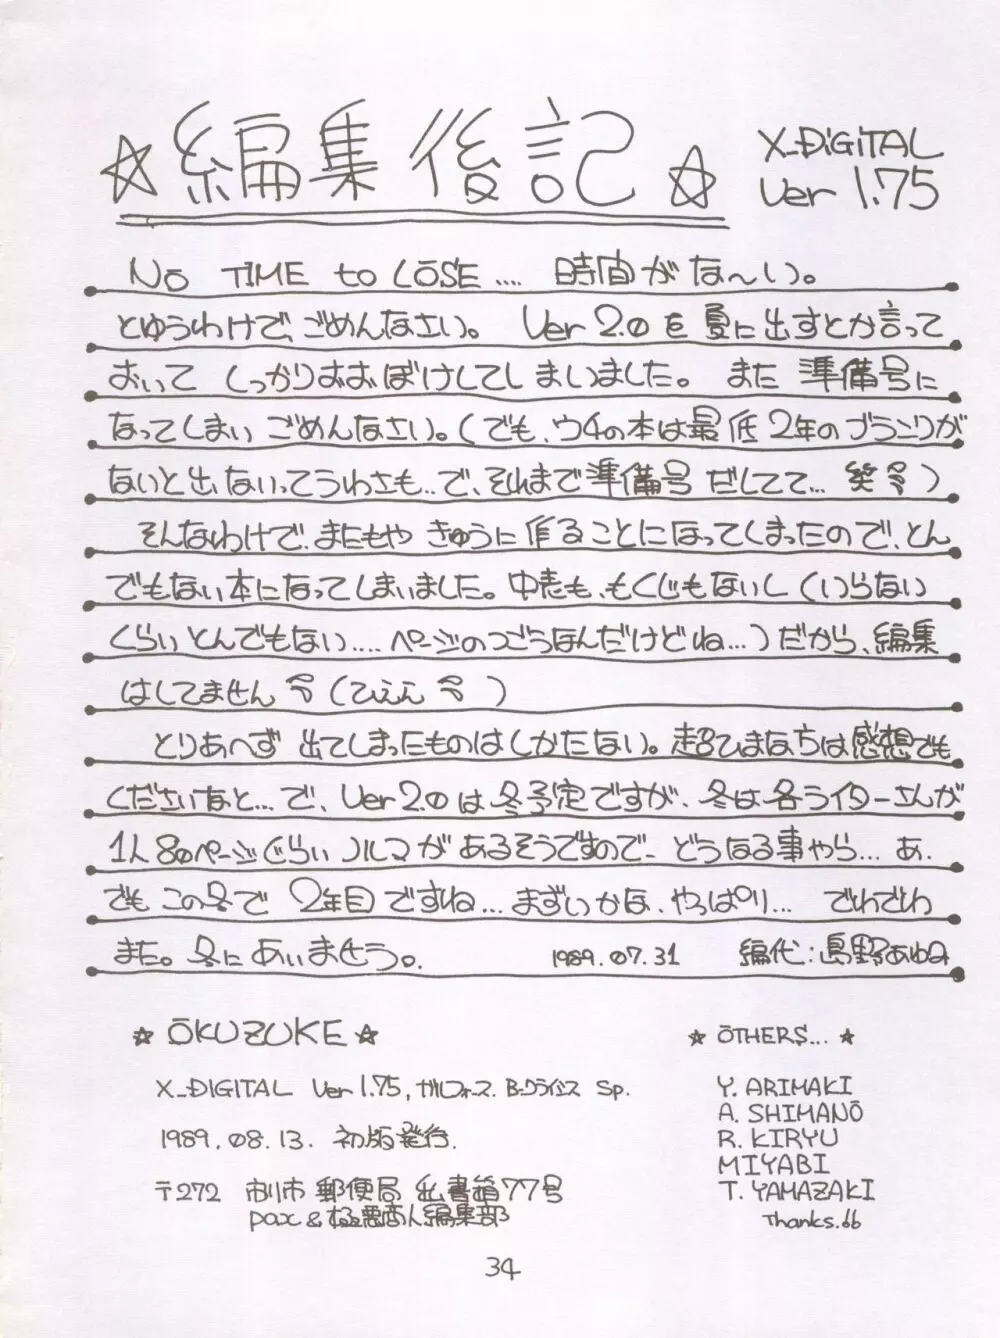 ☆編集後記☆
X_DiGiTAL
Ver 1.75
NO TIME to LOSE.... 時間がな〜い。
とゆうわけで、ごめんなさい。 Ver 2.0を夏に出すとか言って
おいて しっかりおおぼけしてしまいました。 また 準備号に
なってしまい ごめんなさい。(でも、ウチの本は最低2年のブランクが
ないと出ないってうわさも..で、それまで準備号だしてて... 笑)
そんなわけで、またもや きゅうに作ることになってしまったので、とん
でもない本になってしまいました。中表も、もくじもないし(いらない
くらい とんでもない.... ページのつごうなんだけどね...)だから、編集
はしてません (ひええ )
とりあへず 出てしまったものはしかたない。超ひまなら は感想でも
くださいなと... で、Ver 2.0は冬予定ですが、冬は各ライターさんが
1人80ページぐらい ノルマが あるそうですので、どうなる事やら... あ、
でも この冬で 2年目ですね... まずいかな、やっぱり... でわでわ
また。冬に あいませう。 1989.07.31 編代:島野あゆみ
☆ OKUZUKE ☆
X_DIGITAL Ver 1.75, ガルフォース. B-クライシス Sp.
1989.08.13. 初版発行.
〒272 市川市 郵便局 私書箱77号
pax & 極悪商人編集部
☆ OTHERS... ☆
Y. ARIMAKI
A. SHIMANO
R. KIRYU
MIYABI
T. YAMAZAKI
Thanks.66
34